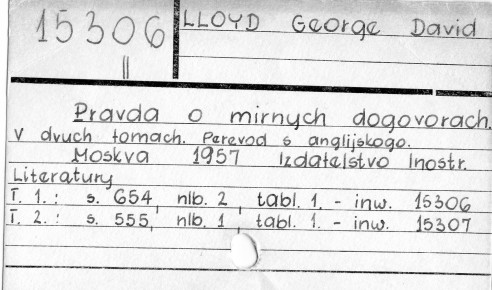 15306
LLOYD George David
II
Pravda o mirnych dogovorach.
V dvuch tomach. Perevod s anglijskogo.
Moskva 1957 Izdatelstvo Inostr.
Literatury
T. 1.: s. 654, nlb. 2, tabl. 1. - inw. 15306
T. 2.: s. 555, nlb. 1, tabl. 1. - inw. 15307